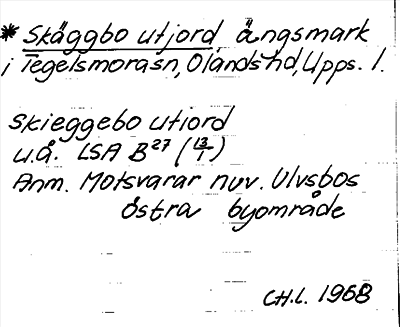 * Skäggbo utjord, ängsmark
i Tegelsmorasn, Olands hd, Upps. l.
Skieggebo utiord
u.å. LSA B27 (13/1)
Anm. Motsvarar nuv. Ulvsbos
östra byområde
CH.L. 1968